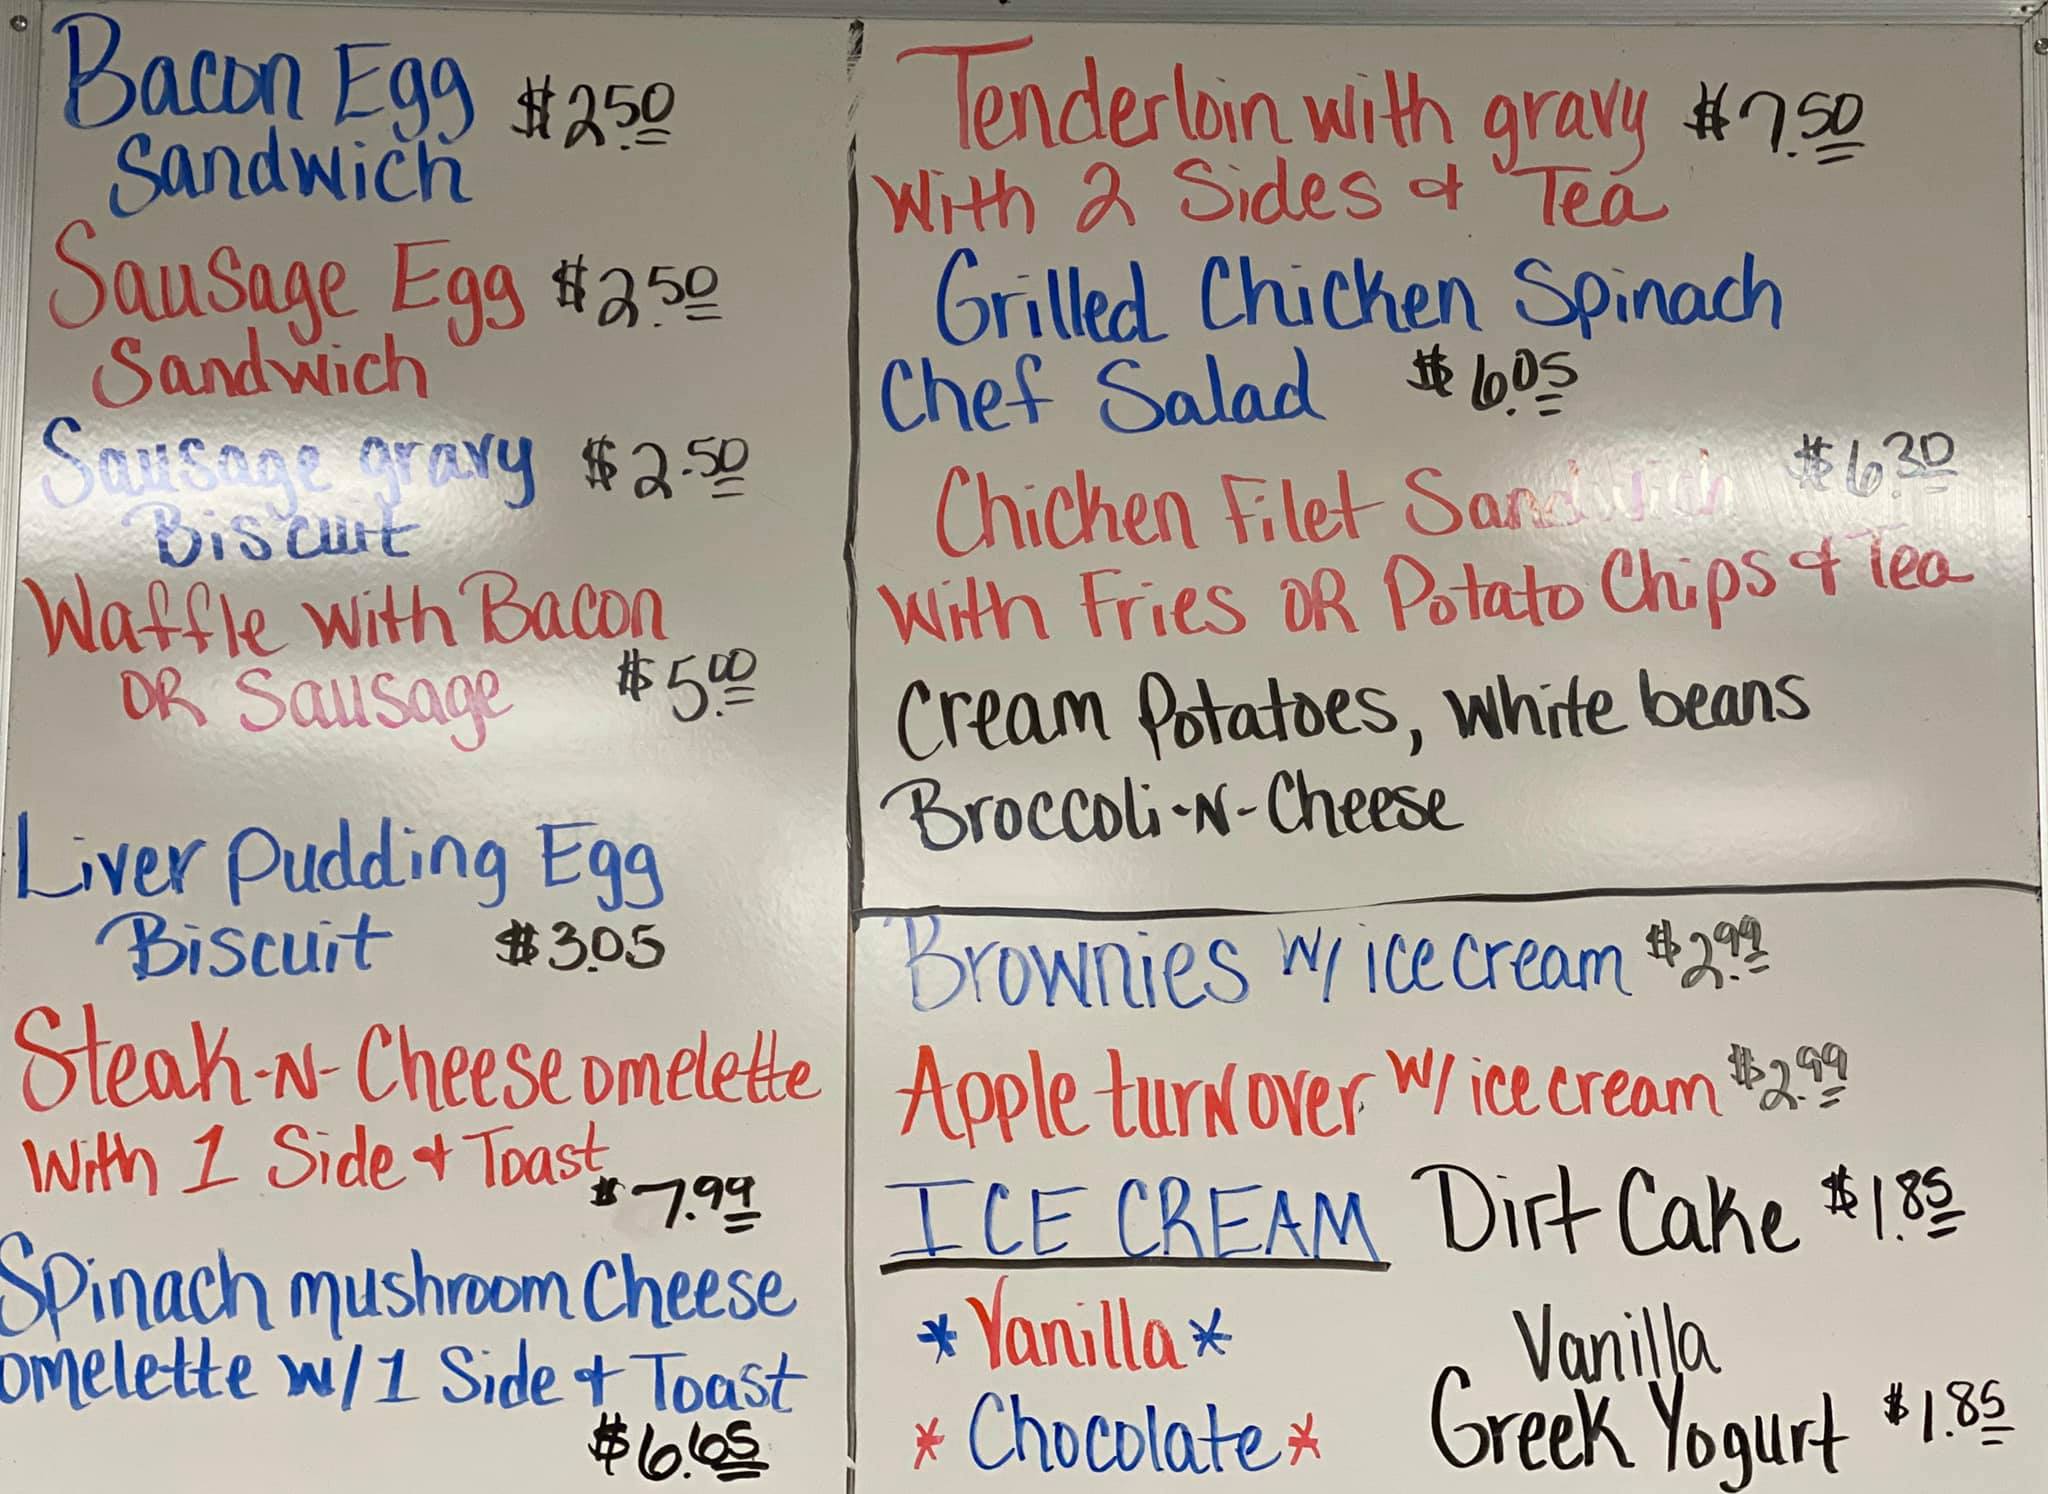 Bacon Egg $2.50
Sandwich
Sausage Egg $2.50
Sandwich
Sausage gravy $2.50
Biscuit
Waffle with Bacon
OR Sausage $5.00
Liver pudding Egg
Biscuit $3.05
Steak-N-Cheese omelette
with 1 Side & Toast
$7.99
Spinach mushroom Cheese
omelette w/1 Side & Toast
$6.65
Tenderloin with gravy $7.50
with 2 Sides & Tea
Grilled Chicken Spinach
Chef Salad $6.05
Chicken Filet Sandwich $6.30
with Fries OR Potato Chips & Tea
Cream Potatoes, white beans
Broccoli-N-Cheese
Brownies w/ ice cream $2.99
Apple turnover w/ ice cream $2.99
ICE CREAM
*Vanilla*
*Chocolate*
Dirt Cake $1.85
Vanilla
Greek Yogurt $1.85